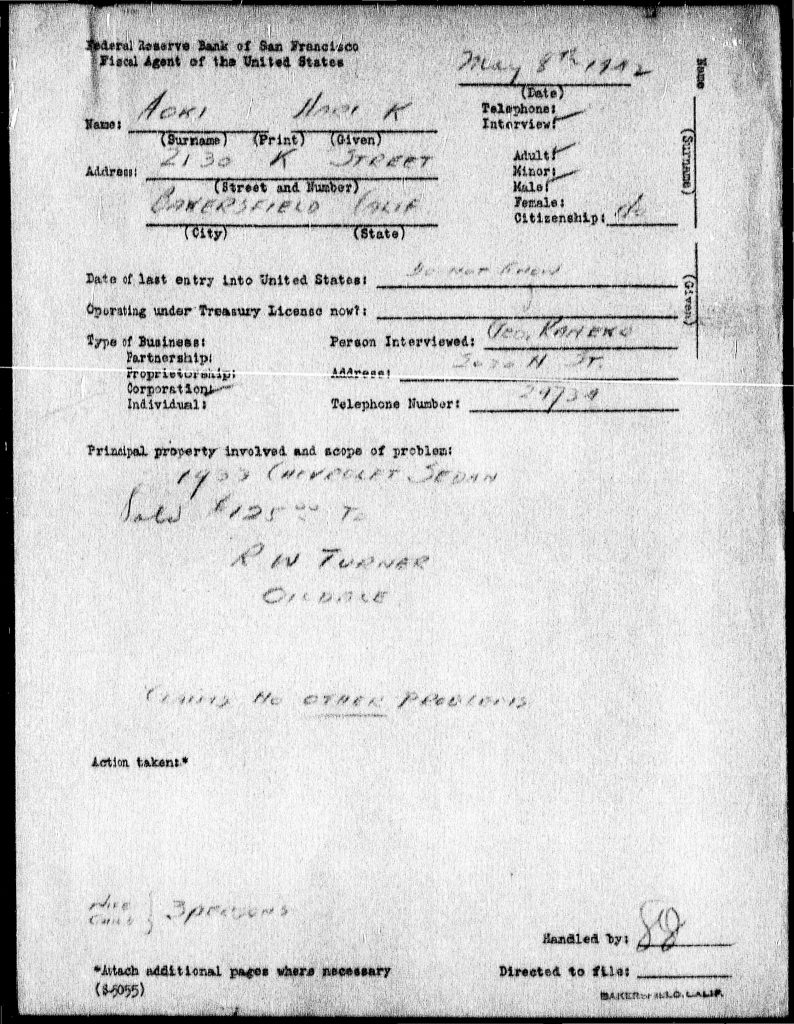 Federal Reserve Bank of San Francisco
Fiscal Agent of the United States
May 8th 1942
(Date)
Name: AOKI K
(Surname) (Print) (Given)
Telephone:
Interview:
Address: 2130 K STREET
(Street and Number)
Adult:
Minor:
Male:
Female:
Citizenship:
BAKERSFIELD CALIF
(City) (State)
Name (Surname) (Given)
Date of last entry into United States: Do not know
Operating under Treasury License now?:
Type of Business: Person Interviewed: Geo. KANEKO
Partnership:
Proprietorship: Address: N St.
Corporation:
Individual: Telephone Number:
Principal property involved and scope of problem:
CHEVROLET SEDAN
Sold $125.00 To
R W TURNER
OILDALE
Claims No OTHER PROBLEMS
Action taken:*
Wife
Child } 3 persons
Handled by:
*Attach additional pages where necessary Directed to file:
(S-5055)
BAKERSFIELD, CALIF.